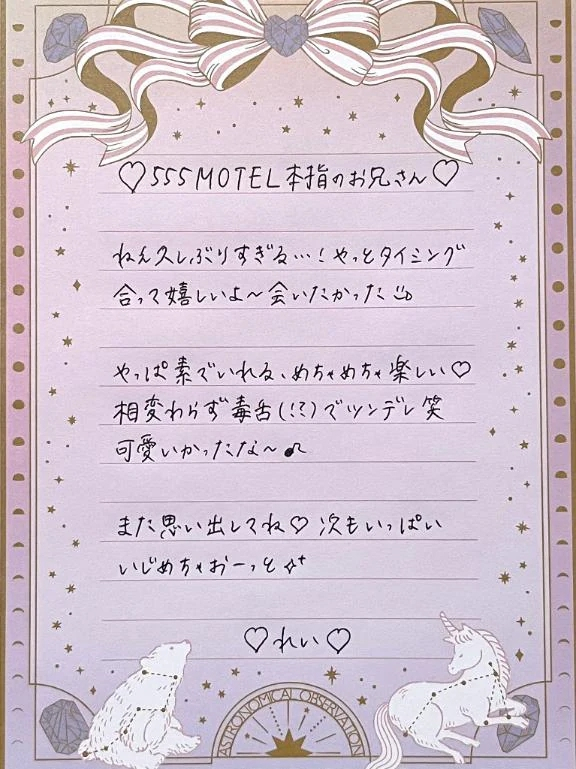 ♡555MOTEL本指のお兄さん♡
ねえ久しぶりすぎる…!やっとタイミング
合って嬉しいよ〜会いたかった
やっぱ素でいれる、めちゃめちゃ楽しい♡
相変わらず毒舌(!?)でツンデレ笑
可愛いかったな〜♪
また思い出してね♡次もいっぱい
いじめちゃおーっと
♡れい♡
ASTRONOMICAL OBSERVATION